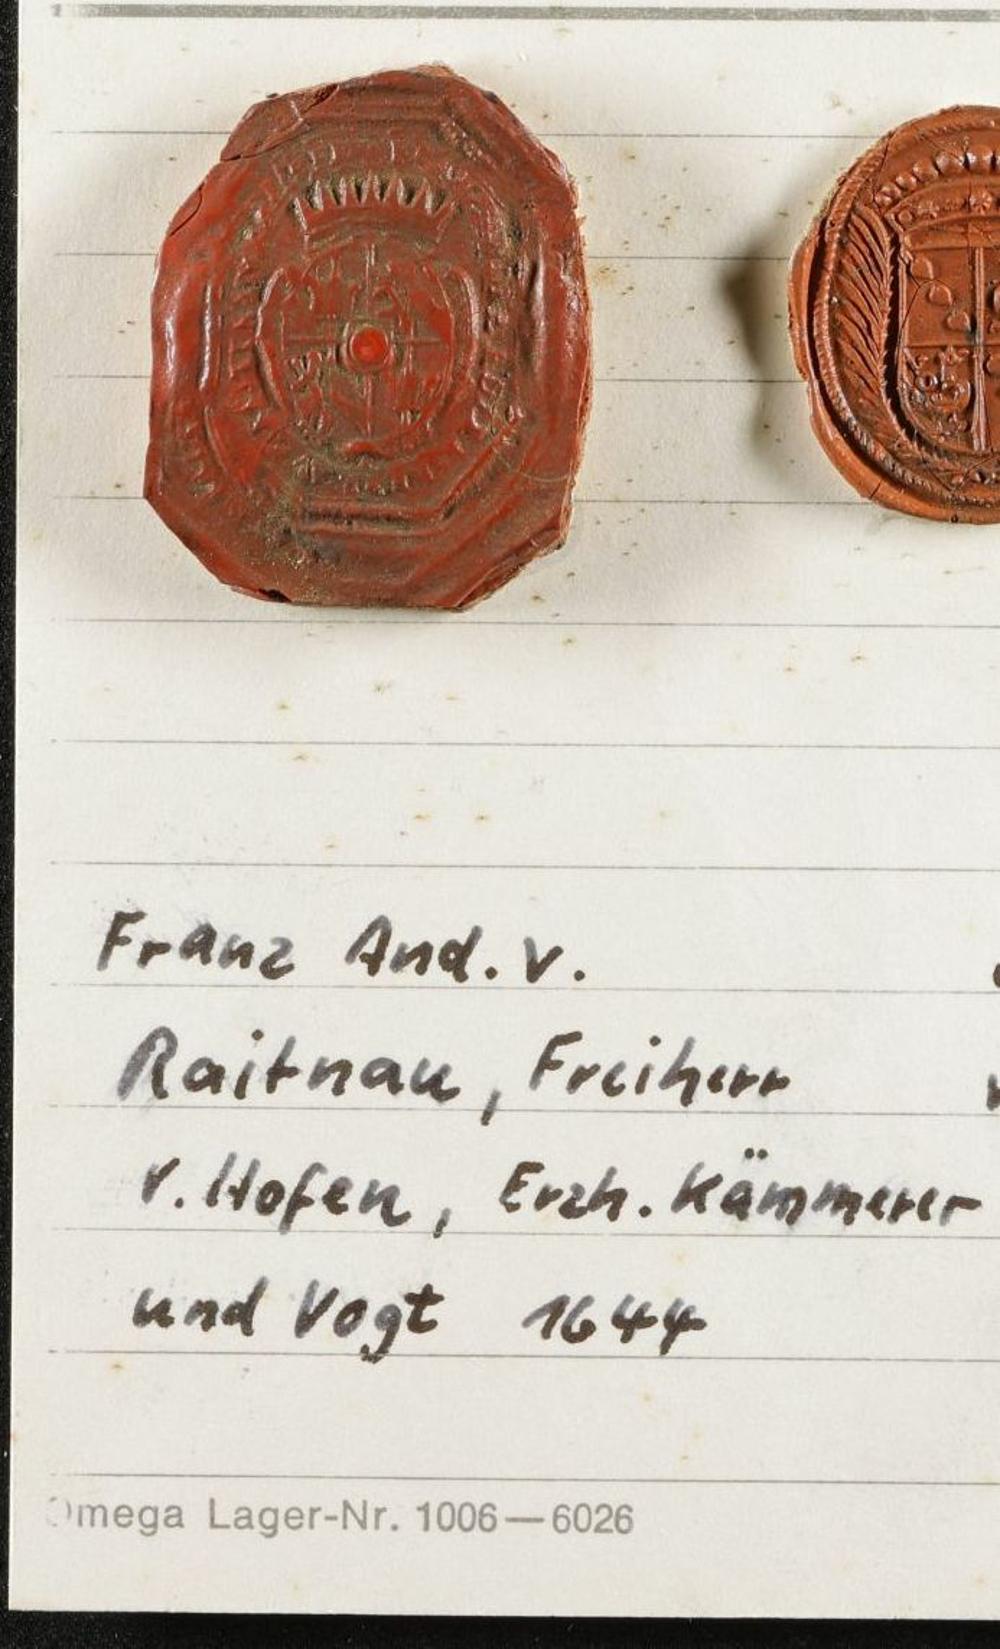 Franz And. v.
Raitnau, Freiherr
v. Hofen, Erzh. Kämmerer
und Vogt 1644
Omega Lager-Nr. 1006—6026